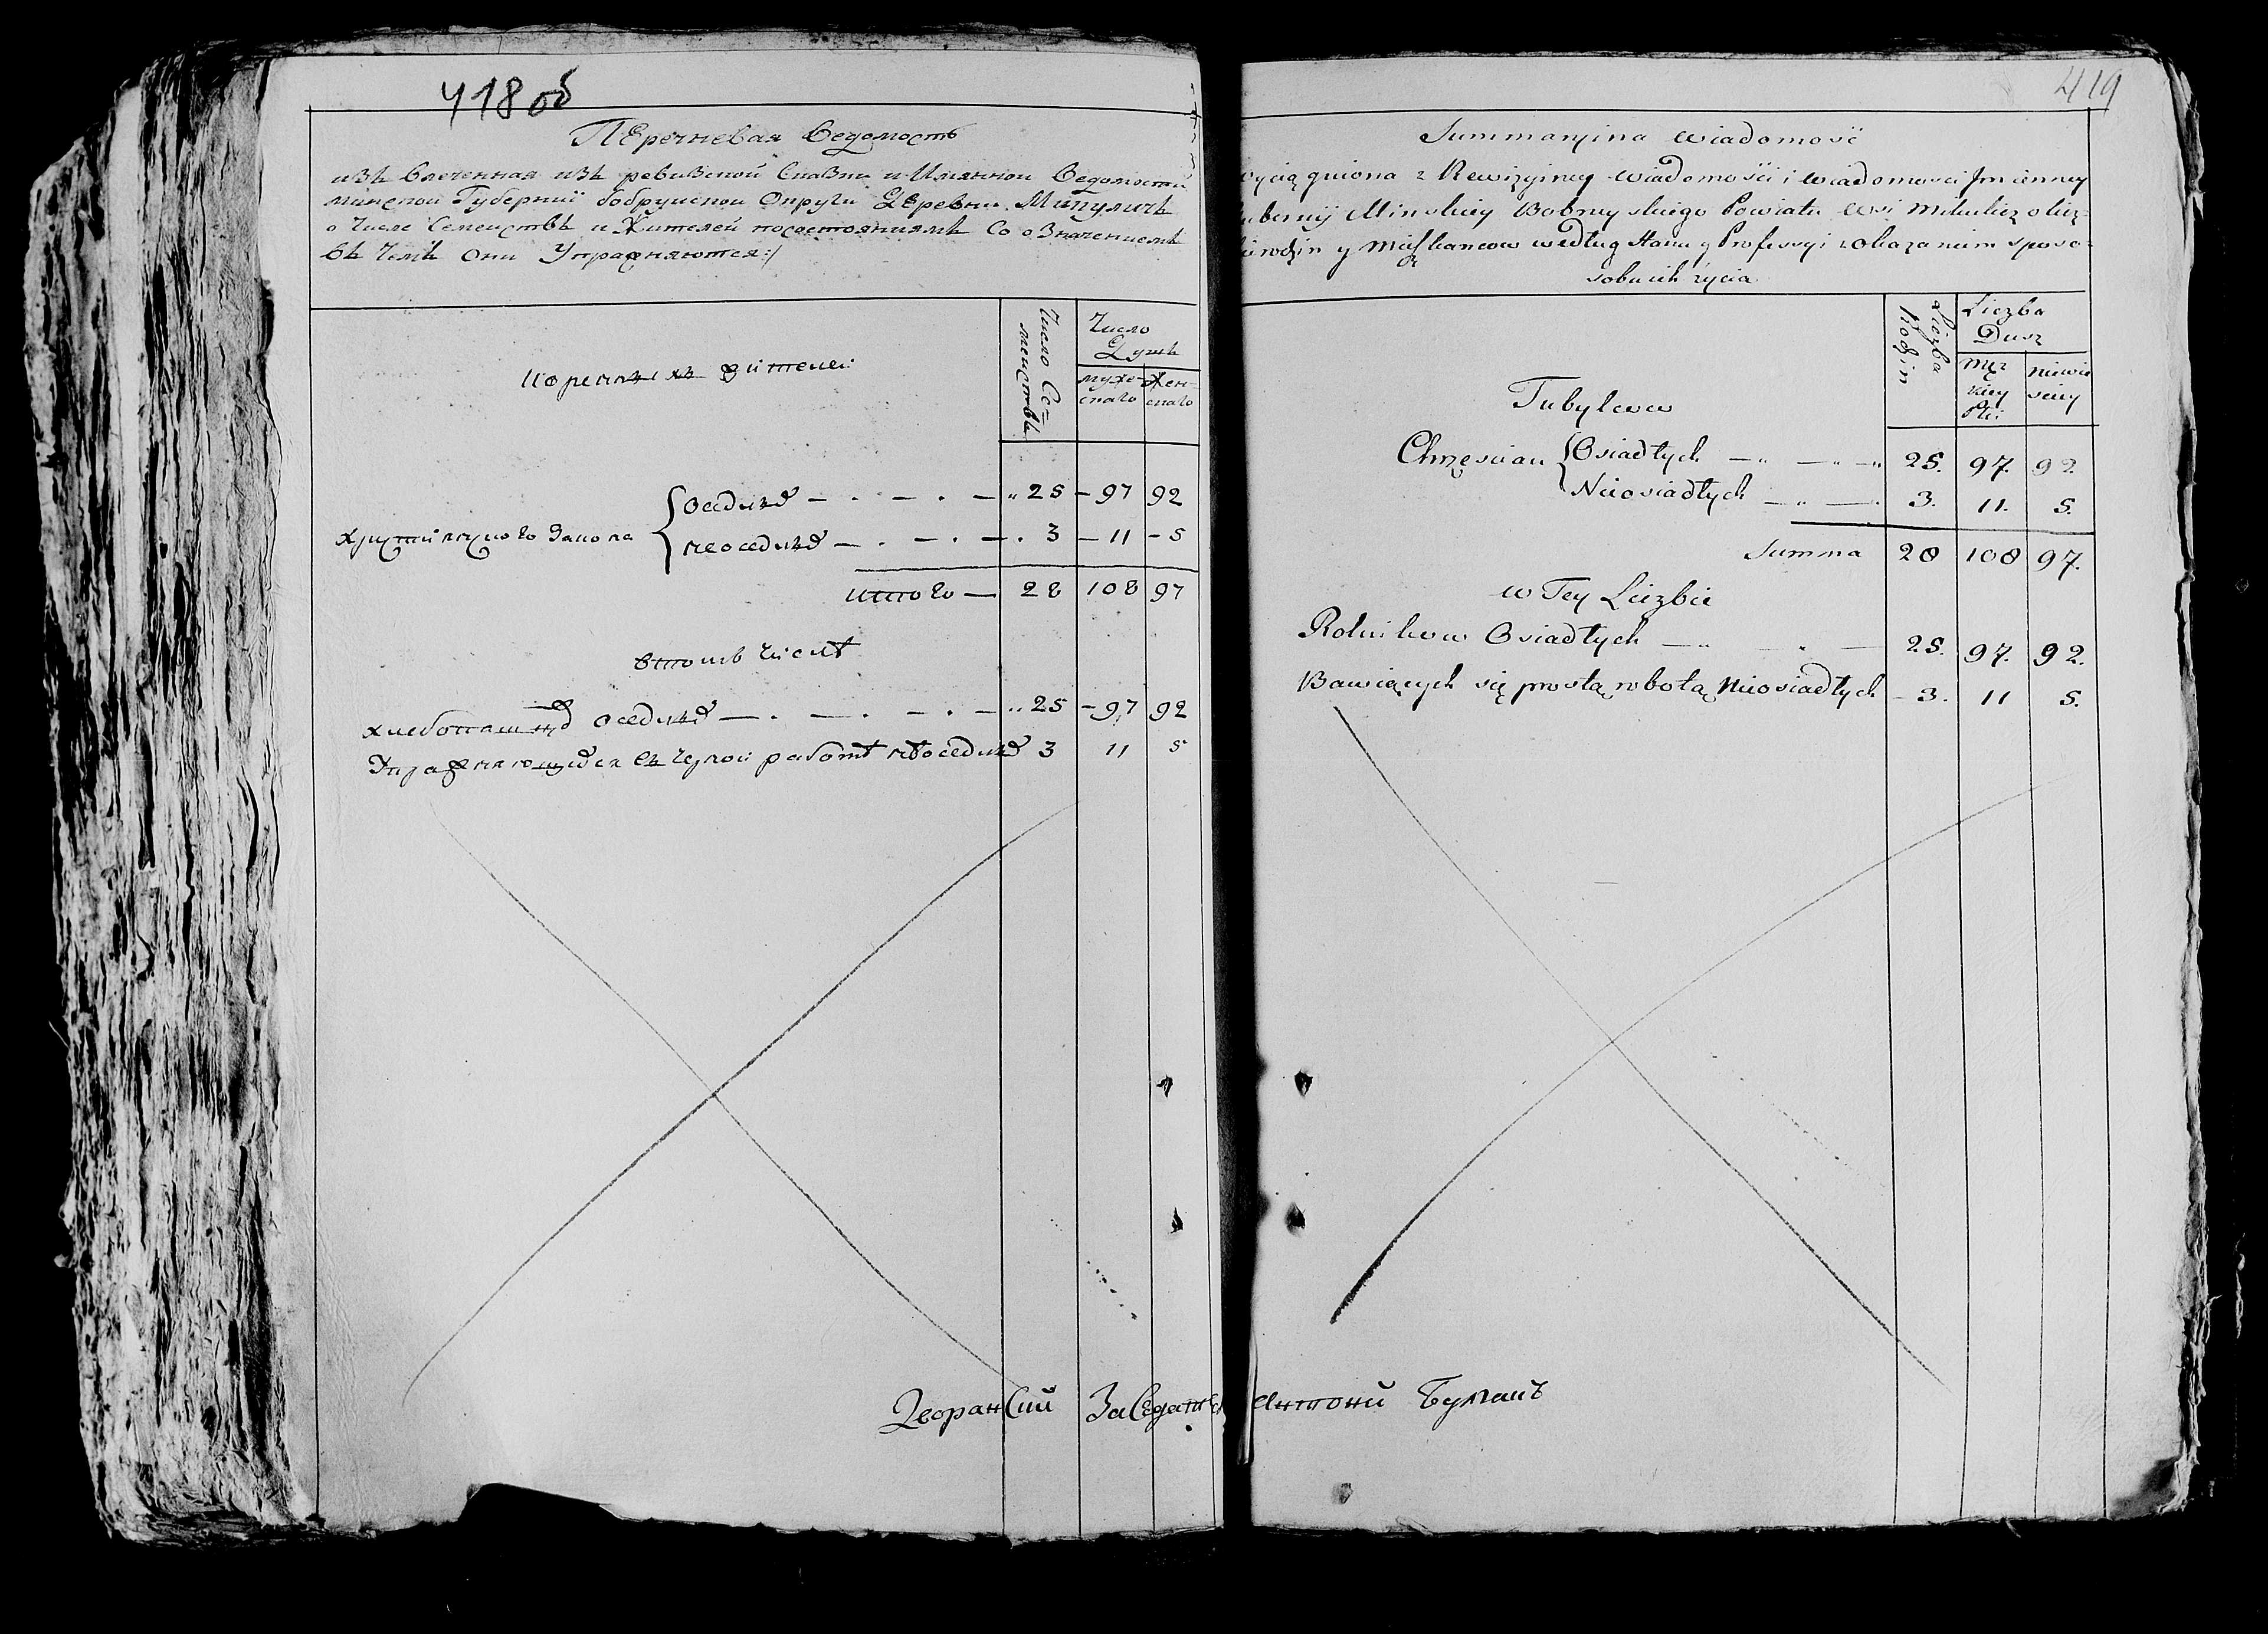 418об
Перечневая Ведомость
изъ влеченная изъ ревизской Сказки и Имянной Ведомости
минской Губернии бобруйской Округи Деревни Микуличъ
о Числе Семействъ и Жителей посостояниямъ Со оЗначениемъ
въ Чемъ Они Упражняются:/
коренныхъ жителеи
Число Се=
меиствъ
Число
Душъ
муже-
скаго
Жен-
скаго
християнского Закона
оседлых — 25 — 97 92
неоседлых — 3 — 11 — 5
итого — 28 108 97
втомъ числѣ
хлебопашцов оседлых — 25 — 97 92
Упражняющихся въ черной работѣ неоседлых 3 11 5
Дворанский Заседатель Антоний Булгакъ
419
Summaryina wiadomość
wyciągniona z Rewizyiney wiadomości i wiadomości Jmienney
Gubernij Minskiey Bobruyskiego Powiatu wsi Mikulicz o licz=
bie rodzin y Mieszkancow według Stanu y Professyi z okazaniem sposo=
sobu ich życia
Liczba
Rodzin
Liczba
Dusz
Męz
kiey
Płci
Niewie
sciey
Tubylcow
Chrześcian
Osiadłych — 25. 97. 92.
Nieosiadłych — 3. 11. 5.
Summa 28 108 97.
w Tey Liczbie
Rolnikow Osiadłych — 25. 97. 92.
Bawiących się prostą robotą Nieosiadłych — 3. 11 5.